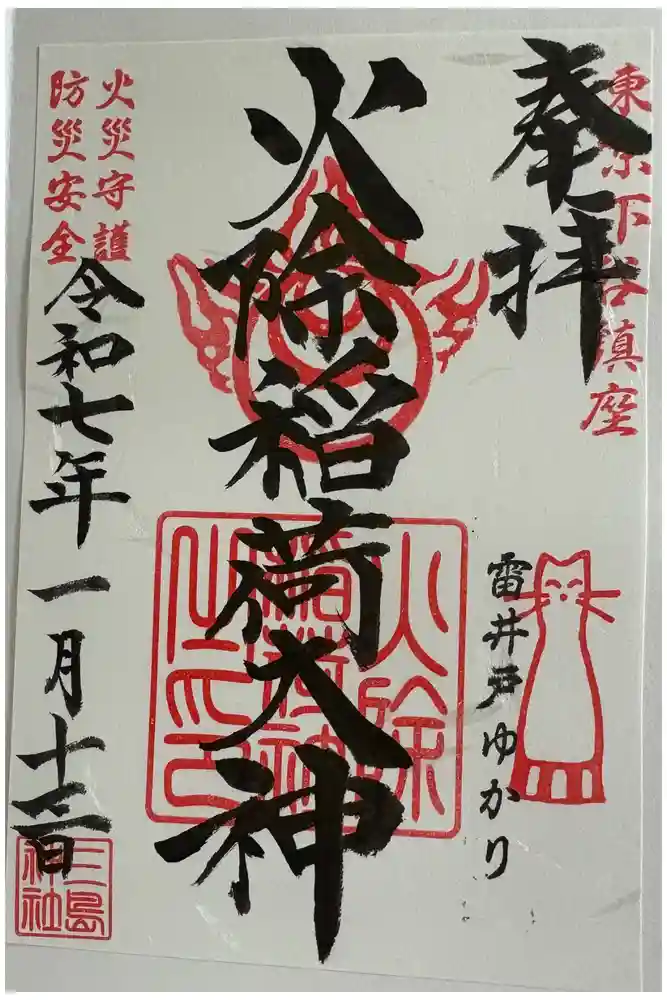 東京下谷鎮座
奉拝
雷井戸ゆかり
火除稲荷大神
火除
稲荷神
之印
火災守護
防災安全
令和七年一月十三日
三島
神社